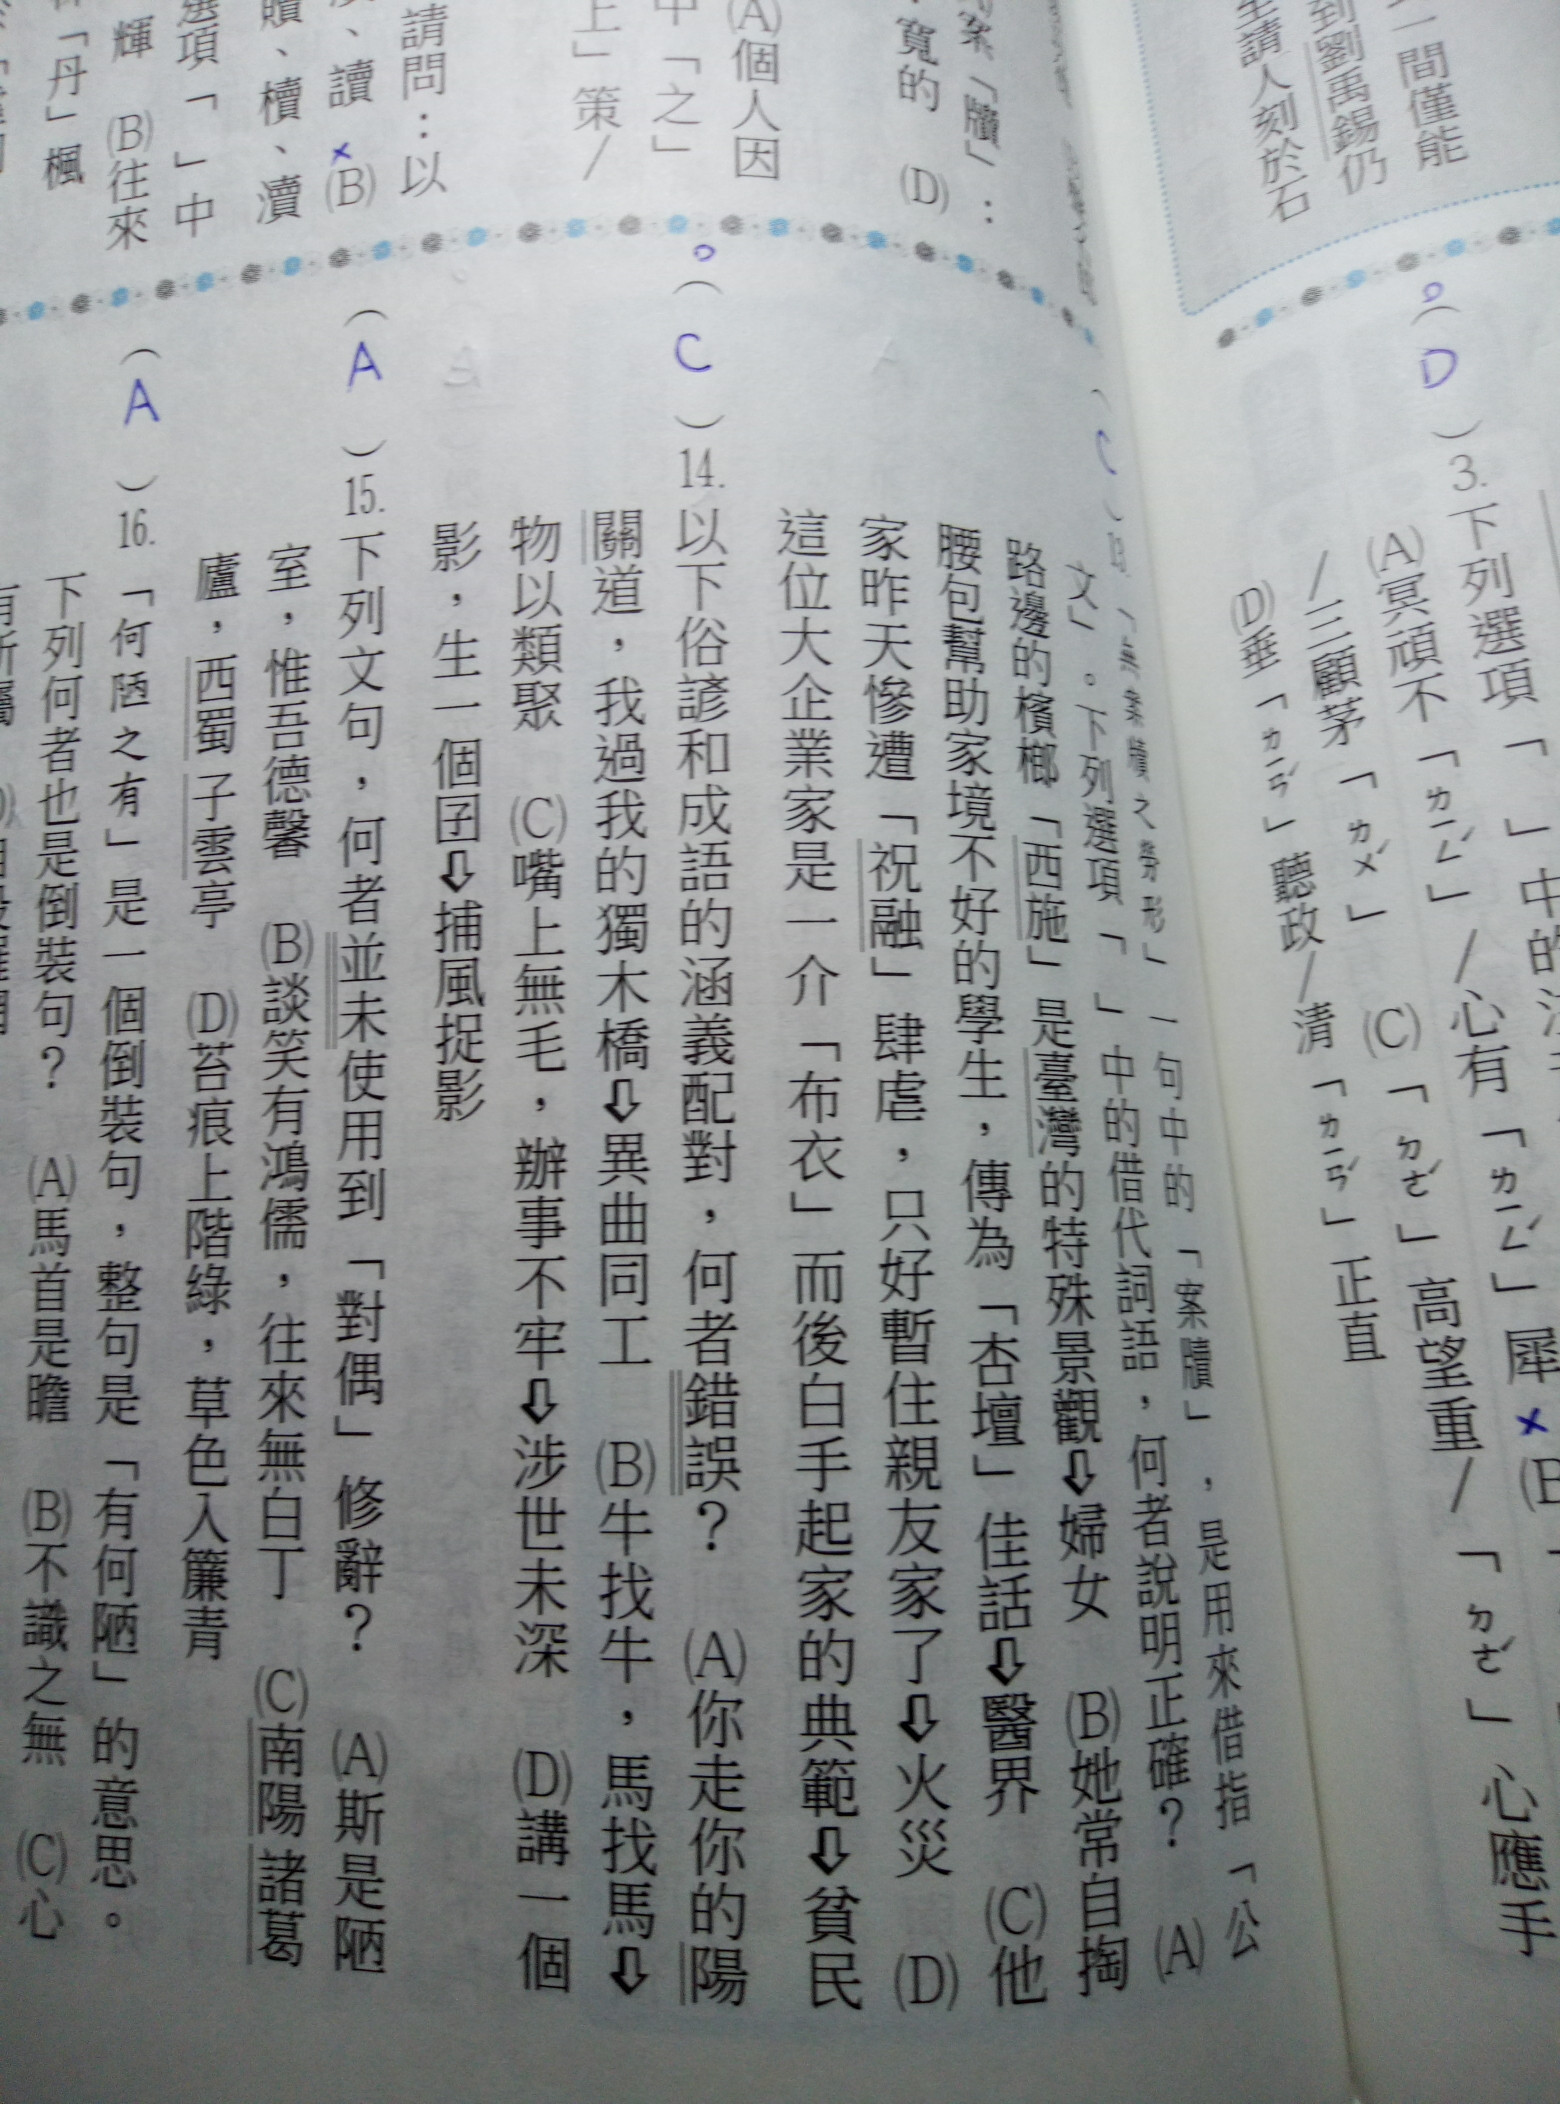 一間僅能
到劉禹錫仍
請人刻於石
D
3.下列選項「 」中的
(A)冥頑不「ㄌㄧㄥˊ」/心有「ㄌㄧㄥˊ」犀
×(B
/三顧茅「ㄌㄨˊ」 (C)「ㄉㄜˊ」高望重/「ㄉㄜˊ」心應手
(D)垂「ㄌㄧㄢˊ」聽政/清「ㄌㄧㄢˊ」正直
案「牘」:
寬的 (D)
(A)個人因
中「之」
上」策/
請問:以
、讀 ×(B)
牘、櫝、瀆
選項「 」中
輝 (B)往來
「丹」楓
(C)13.「無案牘之勞形」一句中的「案牘」,是用來借指「公
文」。下列選項「 」中的借代詞語,何者說明正確? (A)
路邊的檳榔「西施」是臺灣的特殊景觀⇩婦女 (B)她常自掏
腰包幫助家境不好的學生,傳為「杏壇」佳話⇩醫界 (C)他
家昨天慘遭「祝融」肆虐,只好暫住親友家了⇩火災 (D)
這位大企業家是一介「布衣」而後白手起家的典範⇩貧民
(C)14.以下俗諺和成語的涵義配對,何者錯誤? (A)你走你的陽
關道,我過我的獨木橋⇩異曲同工 (B)牛找牛,馬找馬⇩
物以類聚 (C)嘴上無毛,辦事不牢⇩涉世未深 (D)講一個
影,生一個囝⇩捕風捉影
(A)15.下列文句,何者並未使用到「對偶」修辭? (A)斯是陋
室,惟吾德馨 (B)談笑有鴻儒,往來無白丁 (C)南陽諸葛
廬,西蜀子雲亭 (D)苔痕上階綠,草色入簾青
(A)16.「何陋之有」是一個倒裝句,整句是「有何陋」的意思。
下列何者也是倒裝句? (A)馬首是瞻 (B)不識之無 (C)心